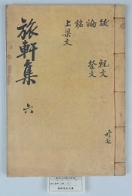 跋 祝文
論 祭文
銘
上梁文
旅軒集 六